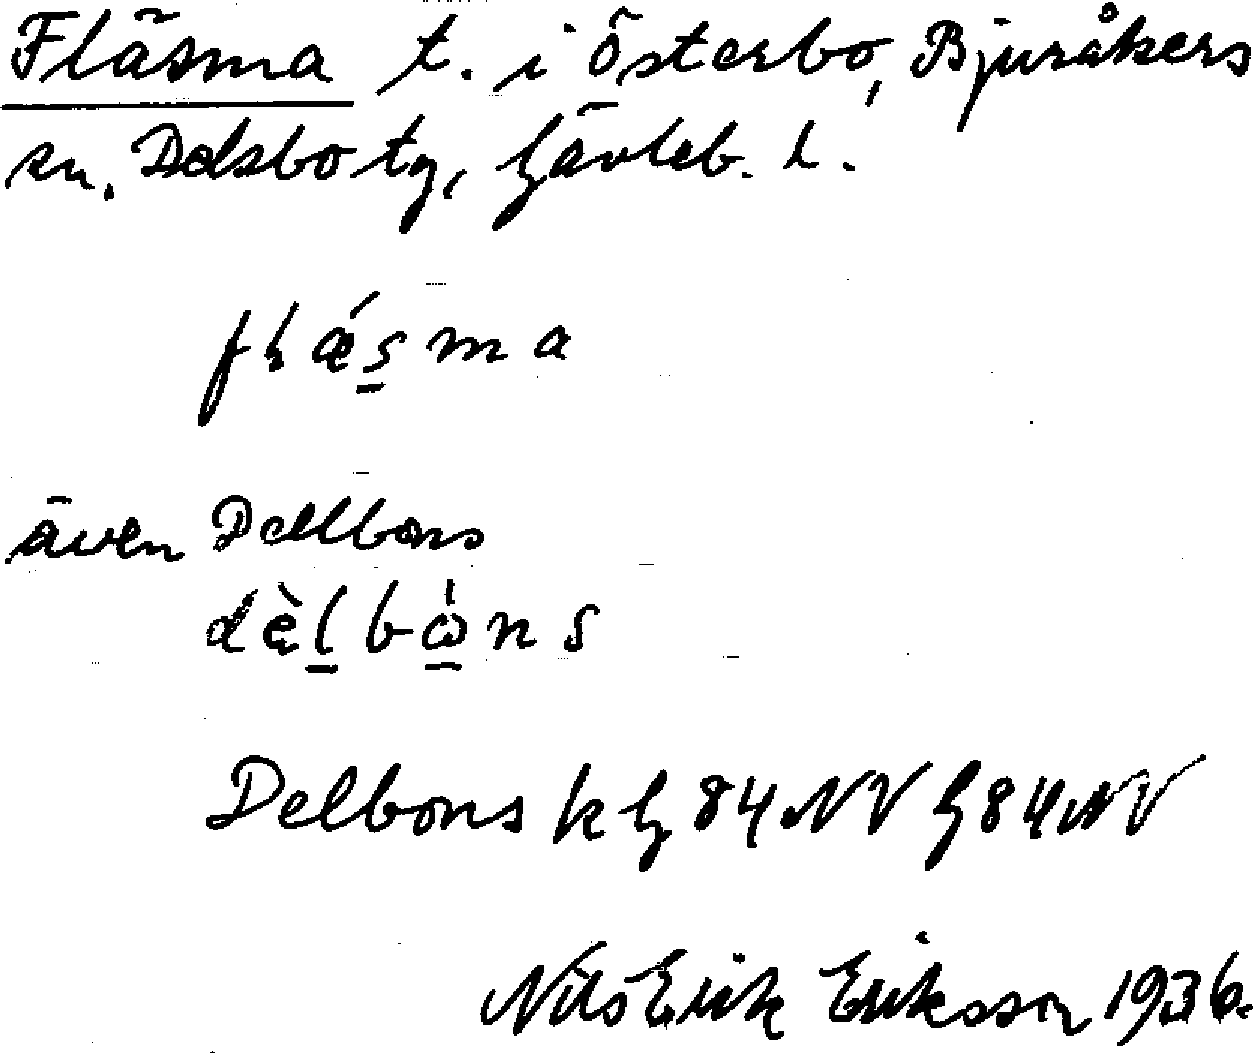 Fläsma t. i Österbo, Bjuråkers
sn. Delsbo tg, Gävleb. l.
flǽs̠ma
även Dellbons
dèl̠bὼ̠ns
Delbons k G 84 NV G 84 NV
Nils Erik Eriksson 1936.